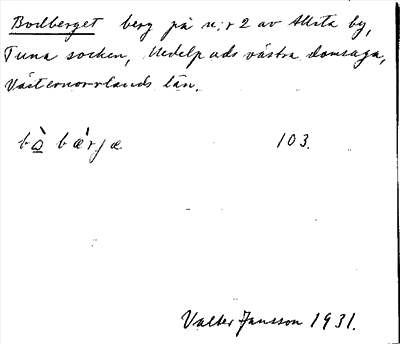 Bodberget berg på n:r 2 av Allsta by,
Tuna socken, Medelpads västra domsaga,
Västernorrlands län.
bò bærjæ 103.
Valter Jansson 1931.